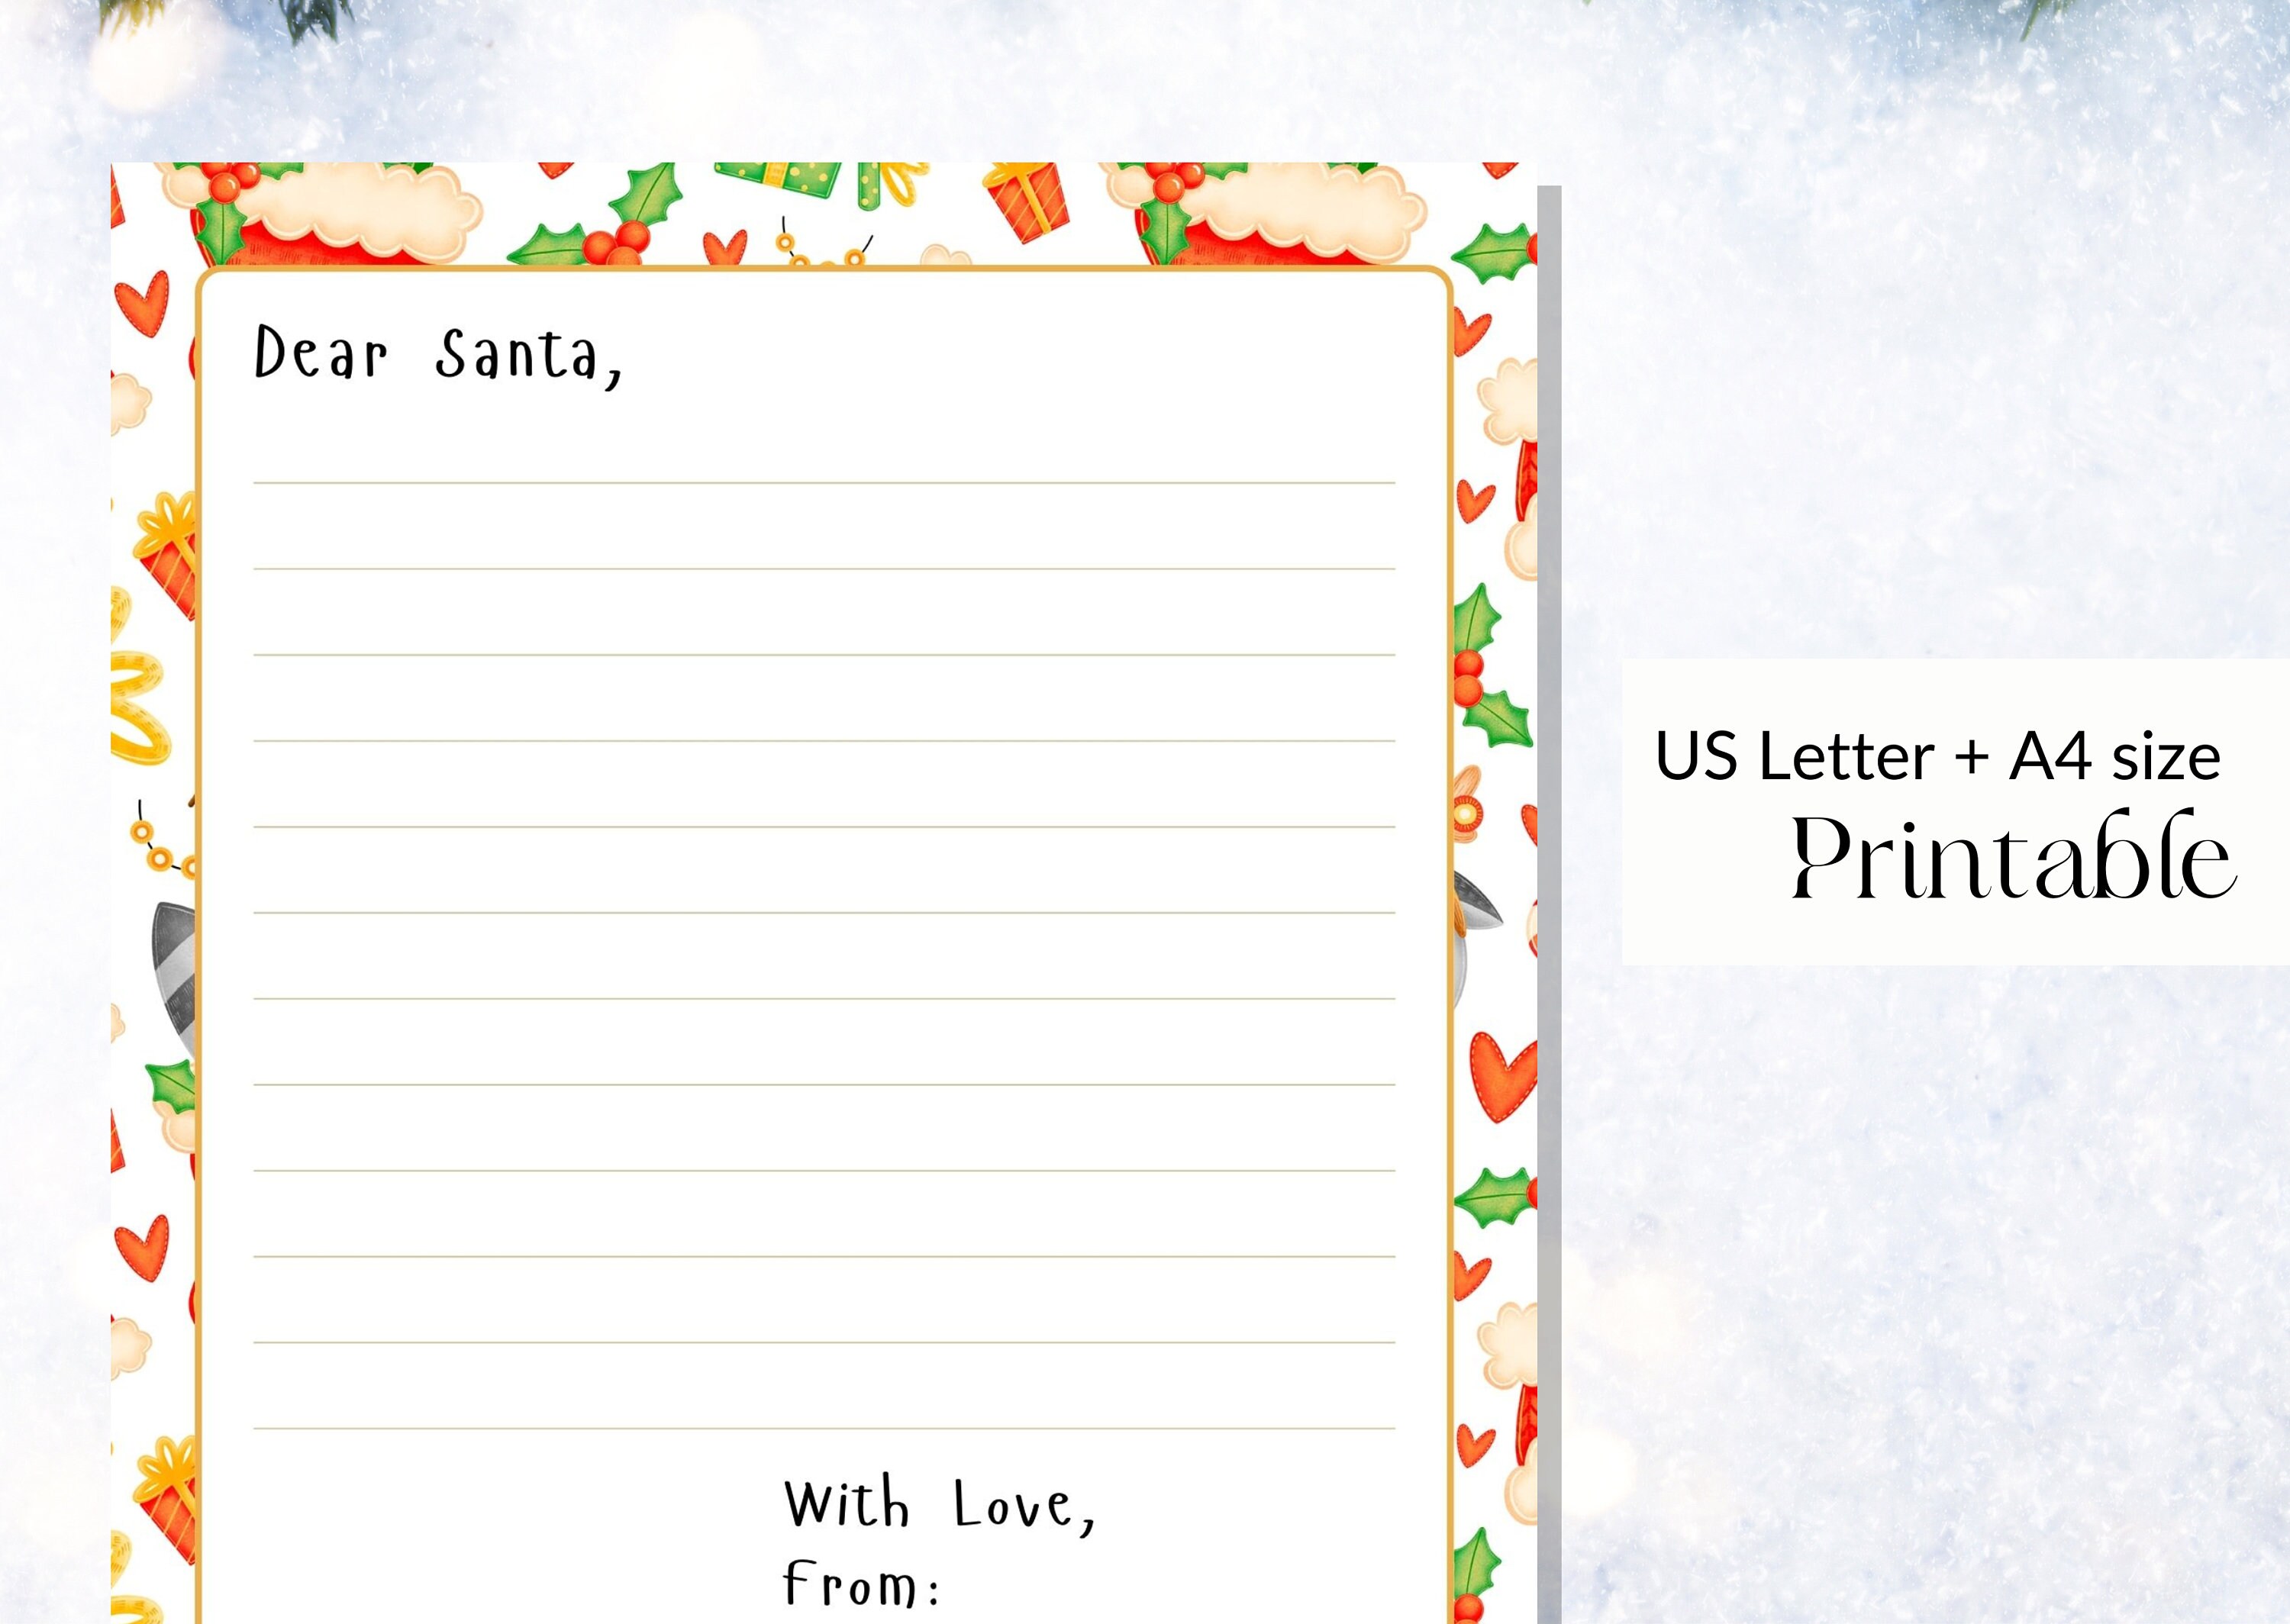 Dear Santa,
With Love,
From:
US Letter + A4 size
Printable